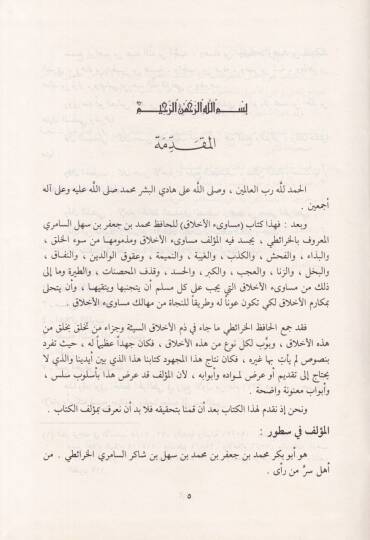 بسم الله الرحمن الرحيم
المقدّمة
الحمد لله رب العالمين ، وصلى الله على هادي البشر محمد صلى الله عليه وعلى آله
أجمعين .
وبعد : فهذا كتاب (مساوىء الأخلاق) للحافظ محمد بن جعفر بن سهل السامري
المعروف بالخرائطي ، يجسد فيه المؤلف مساوىء الأخلاق ومذمومها من سوء الخلق ،
والبذاء ، والفحش ، والكذب ، والغيبة ، والنميمة ، وعقوق الوالدين ، والنفاق ،
والبخل ، والزنا ، والعجب ، والكبر ، والحسد ، وقذف المحصنات ، والطيرة وما إلى
ذلك من مساوىء الأخلاق التي يجب على كل مسلم أن يتجنبها ويتقيها ، وأن يتحلى
بمكارم الأخلاق لكي تكون عوناً له وطريقاً للنجاة من مهالك مساوىء الأخلاق .
فقد جمع الحافظ الخرائطي ما جاء في ذم الأخلاق السيئة وجزاء من تخلق بخلق من
هذه الأخلاق ، وبوّب لكل نوع من هذه الأخلاق ، فكان جهداً عظيماً له ، حيث تفرد
بنصوص لم يأت بها غيره ، فكان نتاج هذا المجهود كتابنا هذا الذي بين أيدينا والذي لا
يحتاج إلى تقديم أو عرض لمواده وأبوابه ، لأن المؤلف قد عرض هذا بأسلوب سلس ،
وأبواب معنونة واضحة .
ونحن إذ نقدم لهذا الكتاب بعد أن قمنا بتحقيقه فلا بد أن نعرف بمؤلف الكتاب .
المؤلف في سطور :
هو أبو بكر محمد بن جعفر بن محمد بن سهل بن شاكر السامري الخرائطي . من
أهل سرَّ من رأى .
٥